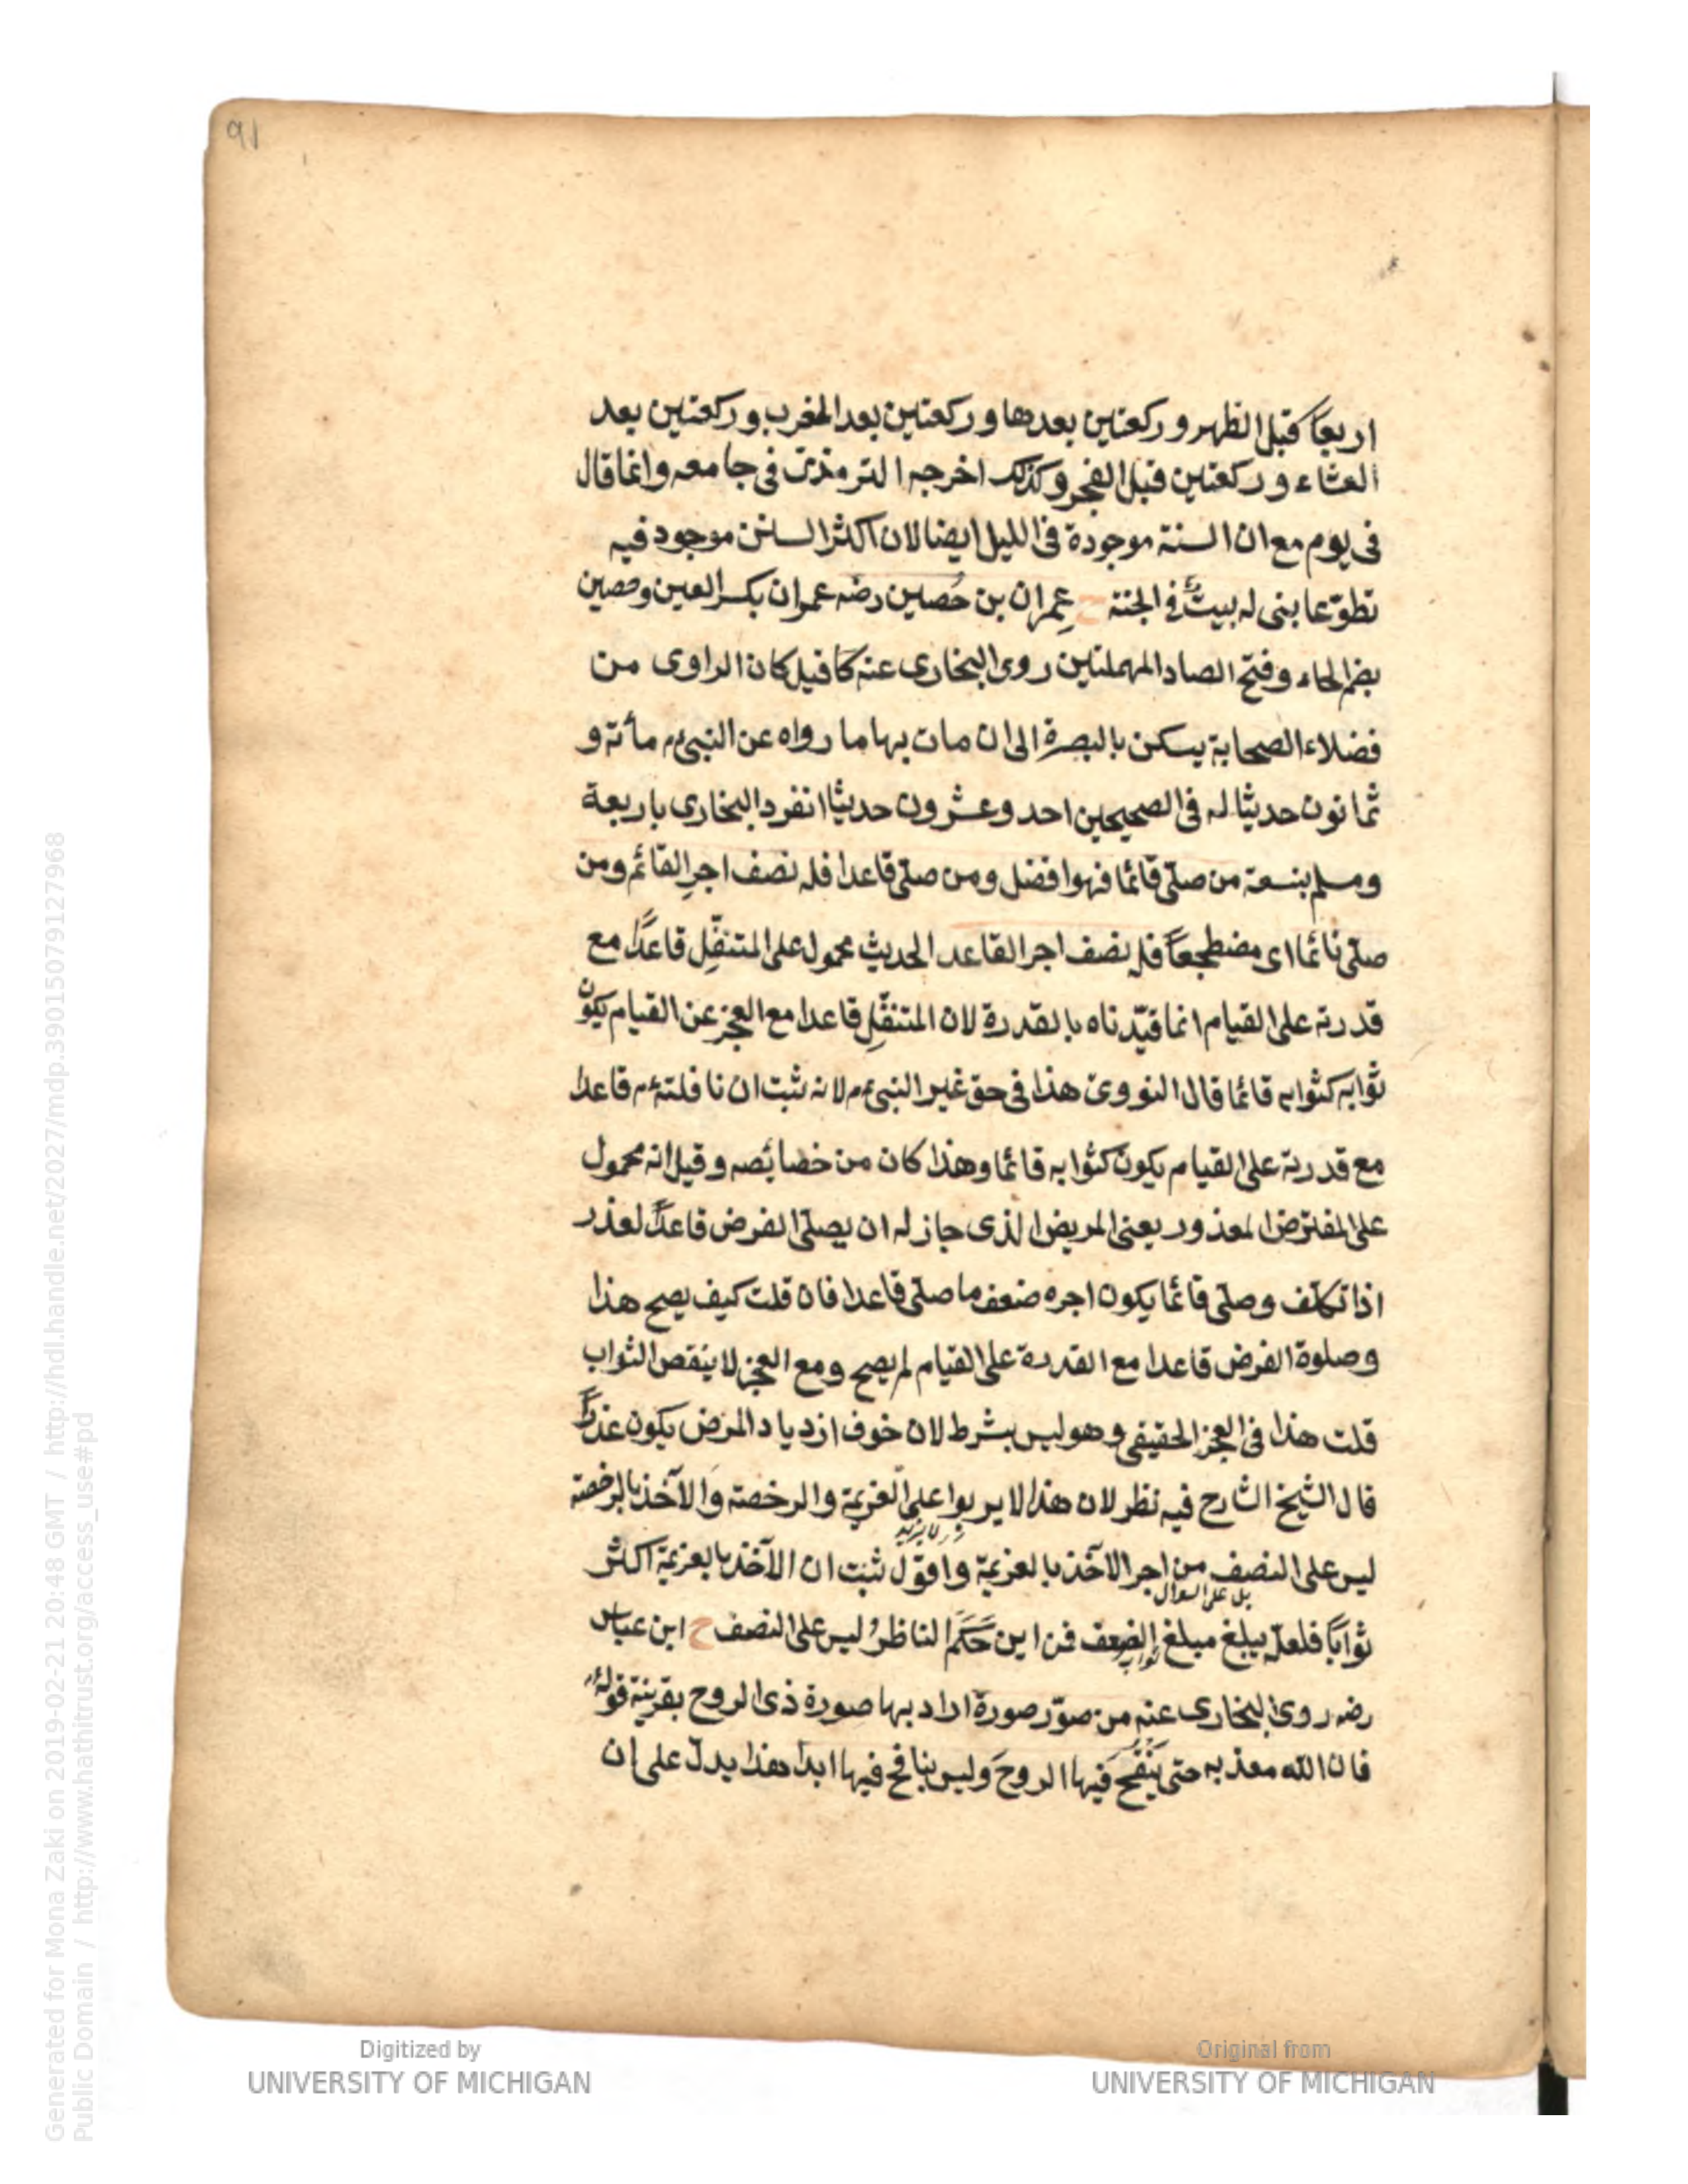 91
اربعًا قبل الظهر و ركعتين بعدها و ركعتين بعد المغرب و ركعتين بعد
العشاء و ركعتين قبل الفجر وكذلك اخرجه الترمذى فى جامعه وانما قال
فى يوم مع ان السنة موجودة فى الليل ايضا لان اكثر السنن موجود فيه
تطوّعا بنى له بيتٌ فى الجنة ح عِمران بن حُصين رضه عمران بكسر العين وحصين
بضم الحاء وفتح الصاد المهملتين روى البخارى عنه كما قيل كان الراوى من
فضلاء الصحابة يسكن بالبصرة الى ان مات بها ما رواه عن النبىءم مأته و
ثمانون حديثا له فى الصحيحين احد وعشرون حديثا انفرد البخارى باربعة
ومسلم بتسعة من صلّى قائما فهو افضل ومن صلّى قاعدا فله نصف اجر القائم ومن
صلّى نائما اى مضطجعًا فله نصف اجر القاعد الحديث محمول على المتنفّل قاعدًا مع
قدرته على القيام انما قيّدناه بالقدرة لان المتنفّل قاعدا مع العجز عن القيام يكون
ثوابه كثوابه قائما قال النووى هذا فى حق غير النبىءم لانه ثبت ان نافلتهءم قاعدا
مع قدرته على القيام يكون كثوابه قائما وهذا كان من خصائصه وقيل انه محمول
على المفترض المعذور يعنى المريض الذى جاز له ان يصلّى الفرض قاعدًا لعذر
اذا تكلّف وصلّى قائما يكون اجره ضعف ما صلّى قاعدا فان قلت كيف يصح هذا
وصلوة الفرض قاعدا مع القدرة على القيام لم يصح ومع العجز لا ينقص الثواب
قلت هذا فى العجز الحقيقى وهو ليس بشرط لان خوف ازدياد المرض يكون عذرًا
قال الشيخ الشارح فيه نظر لان هذا لا يربوا على العزيمة والرخصة والآخذ بالرخصة
لا يزيد
ليس على النصف من اجر الآخذ بالعزيمة واقول ثبت ان الآخذ بالعزيمة اكثر
بل على السؤال
ثوابًا فلعلّه يبلغ مبلغ الضعف فمن اين حَكَمَ الناظرُ ليس على النصف ح ابن عباس
رضه روى البخارى عنه من صوّر صورة اراد بها صورة ذى الروح بقرينة قوله
فان الله معذبه حتى يَنْفُخ فيها الروحَ وليس بنافخ فيها ابدا هذا يدلّ على ان
Generated for Mona Zaki on 2019-02-21 20:48 GMT / http://hdl.handle.net/2027/mdp.39015079127968
Public Domain / http://www.hathitrust.org/access_use#pd
Digitized by
UNIVERSITY OF MICHIGAN
Original from
UNIVERSITY OF MICHIGAN